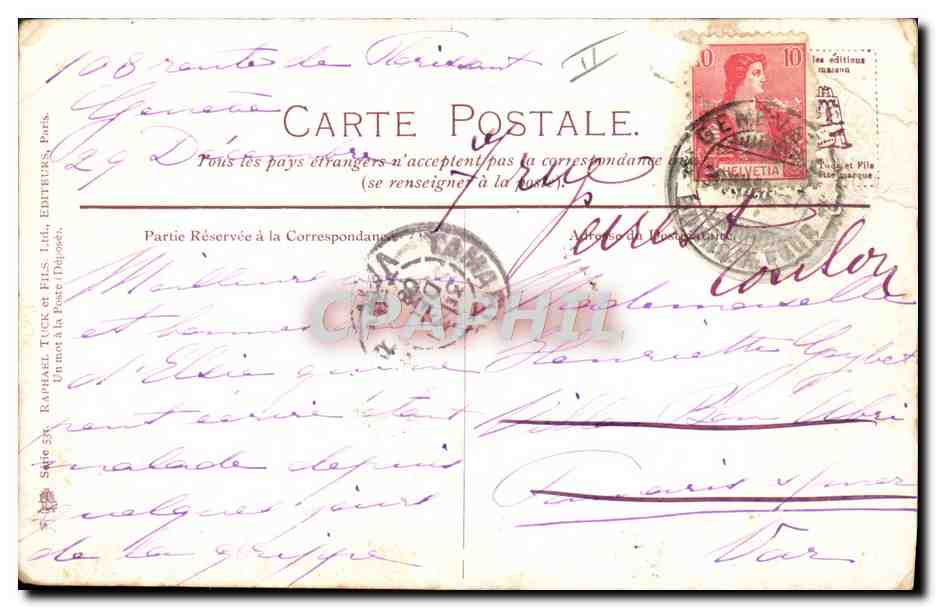 108 route de Florissant
Genève
29 Décembre
II
CARTE POSTALE.
Tous les pays étrangers n'acceptent pas la correspondance au
(se renseigner à la poste).
10 10
HELVETIA
les éditions
maison
Tuck et Fils
marque
GENÈVE
7 rue
Toulon
Partie Réservée à la Correspondance.
Adresse du Destinataire.
TAMARIS
Meilleurs
et bonnes
d'Elsie qui ne
peut écrire étant
malade depuis
quelques jours
de la grippe
Mademoiselle
Henriette Guybet
Villa Bon Abri
Tamaris s/mer
Var
CPAPHIL
Série 531. RAPHAEL TUCK et FILS, Ltd., EDITEURS, Paris.
Un mot à la Poste (Déposé).